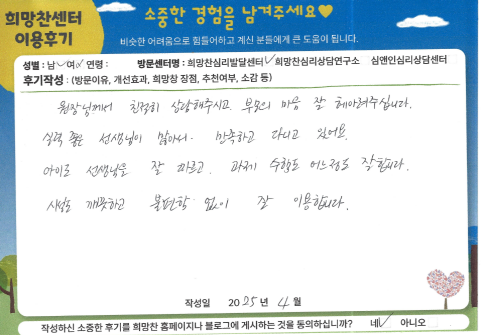 희망찬센터
이용후기
소중한 경험을 남겨주세요♥
비슷한 어려움으로 힘들어하고 계신 분들에게 큰 도움이 됩니다.
성별 : 남 ✓ 여 ✓ 연령 : 방문센터명 : 희망찬심리발달센터 ✓ 희망찬심리상담연구소 심앤인심리상담센터
후기작성 : (방문이유, 개선효과, 희망찬 장점, 추천여부, 소감 등)
원장님께서 친절히 상담해주시고 부모의 마음 잘 헤아려주십니다.
실력 좋은 선생님이 많아서 만족하고 다니고 있어요.
아이도 선생님을 잘 따르고, 과제 수행도 어느정도 잘합니다.
시설도 깨끗하고 불편함 없이 잘 이용합니다.
작성일 2025년 4월
작성하신 소중한 후기를 희망찬 홈페이지나 블로그에 게시하는 것을 동의하십니까? 네 ✓ 아니오